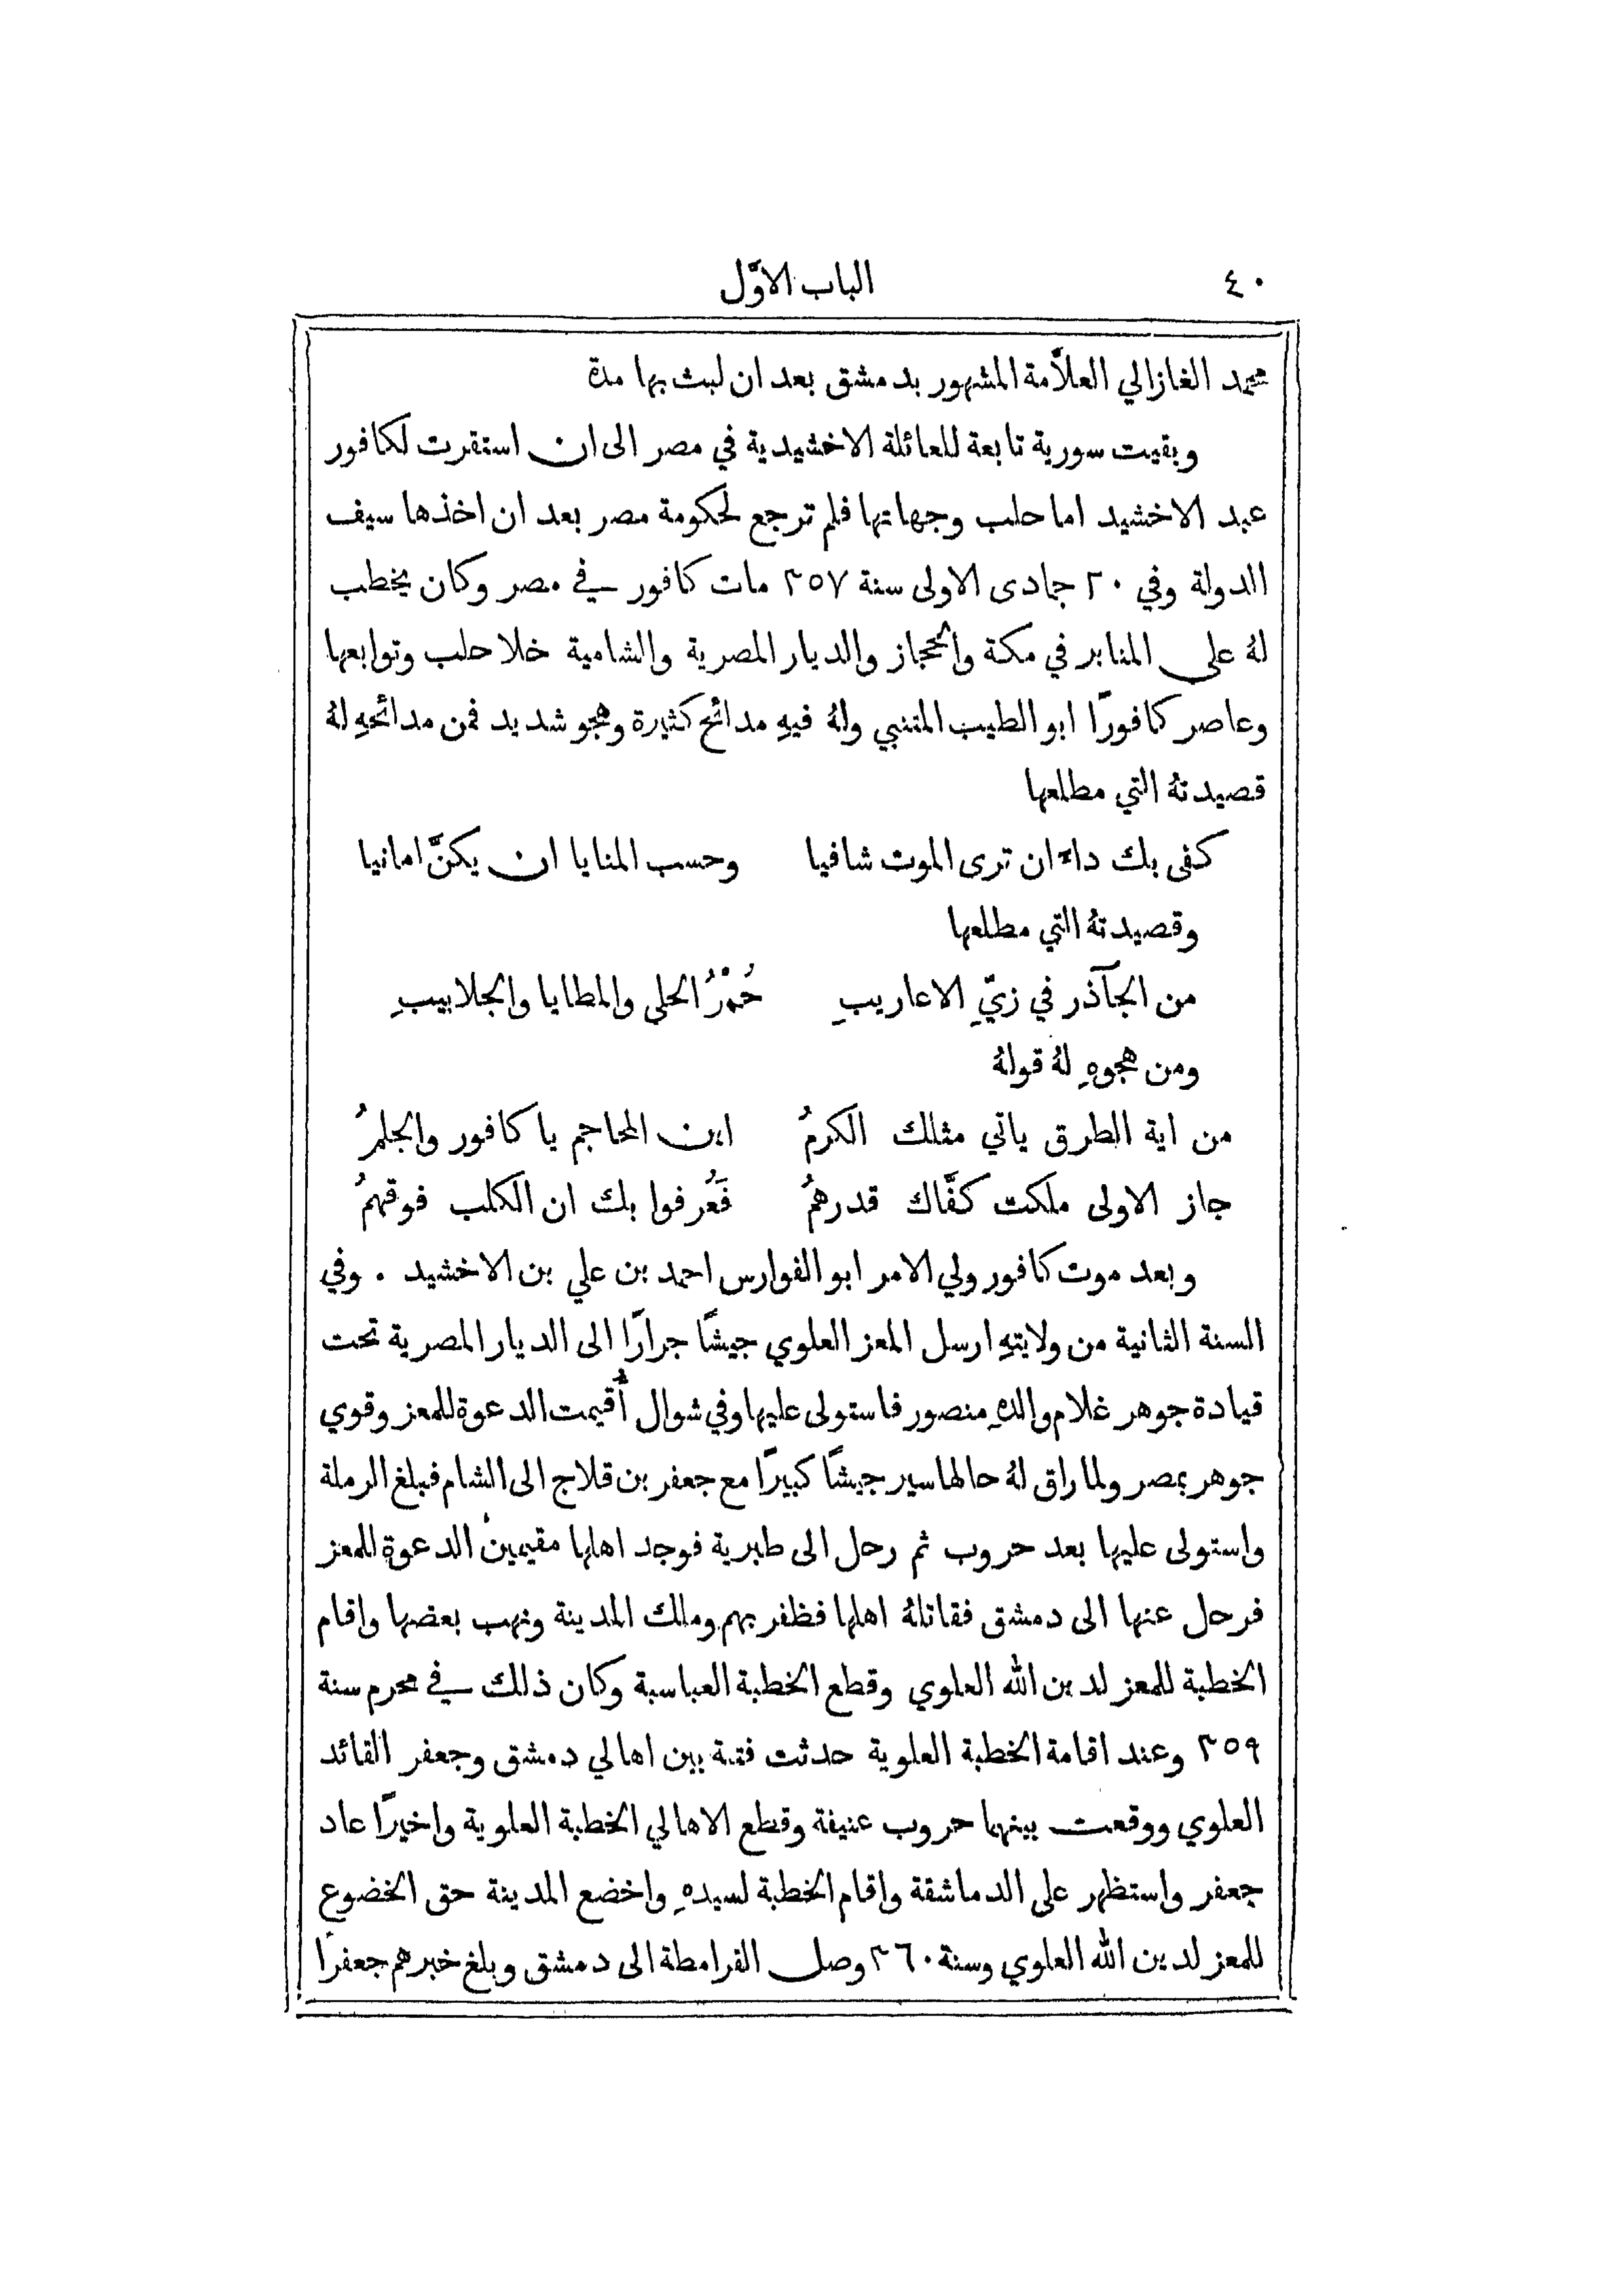 ٤٠
الباب الاوَّل
محمد الغازالي العلاَّمة المشهور بدمشق بعد ان لبث بها مدة
وبقيت سورية تابعة للعائلة الاخشيدية في مصر الى ان استقرت لكافور
عبد الاخشيد اما حلب وجهاتها فلم ترجع لحكومة مصر بعد ان اخذها سيف
الدولة وفي ٢٠ جمادى الاولى سنة ٣٥٧ مات كافور في مصر وكان يخطب
لهُ على المنابر في مكة والحجاز والديار المصرية والشامية خلا حلب وتوابعها
وعاصر كافورًا ابو الطيب المتنبي ولهُ فيهِ مدائح كثيرة وهجو شديد فمن مدائحهِ لهُ
قصيدتهُ التي مطلعها
كفى بك داءً ان ترى الموت شافيا وحسب المنايا ان يكنَّ امانيا
وقصيدتهُ التي مطلعها
من الجآذر في زيِّ الاعاريبِ حُمْرُ الحلى والمطايا والجلابيبِ
ومن هجوهِ لهُ قولهُ
من اية الطرق ياتي مثلك الكرمُ اين المحاجم يا كافور والجلمُ
جاز الاولى ملكت كفَّاك قدرهمُ فَعُرفوا بك ان الكلب فوقهمُ
وبعد موت كافور ولي الامر ابو الفوارس احمد بن علي بن الاخشيد . وفي
السنة الثانية من ولايتهِ ارسل المعز العلوي جيشًا جرارًا الى الديار المصرية تحت
قيادة جوهر غلام والدهِ منصور فاستولى عليها وفي شوال أُقيمت الدعوة للمعز وقوي
جوهر بمصر ولما راق لهُ حالها سير جيشًا كبيرًا مع جعفر بن قلاج الى الشام فبلغ الرملة
واستولى عليها بعد حروب ثم رحل الى طبرية فوجد اهلها مقيمين الدعوة للمعز
فرحل عنها الى دمشق فقاتلهُ اهلها فظفر بهم وملك المدينة ونهب بعضها واقام
الخطبة للمعز لدين الله العلوي وقطع الخطبة العباسية وكان ذلك في محرم سنة
٣٥٩ وعند اقامة الخطبة العلوية حدثت فتنة بين اهالي دمشق وجعفر القائد
العلوي ووقعت بينهما حروب عنيفة وقطع الاهالي الخطبة العلوية واخيرًا عاد
جعفر واستظهر على الدماشقة واقام الخطبة لسيدهِ واخضع المدينة حق الخضوع
للمعز لدين الله العلوي وسنة ٣٦٠ وصل القرامطة الى دمشق وبلغ خبرهم جعفرًا